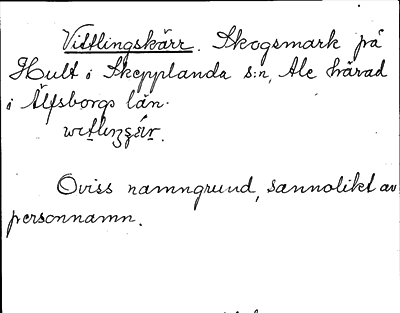 Vittlingskärr. Skogsmark på
Hult i Skepplanda s:n, Ale härad
i Älfsborgs län.
Oviss namngrund, sannolikt av
personnamn.